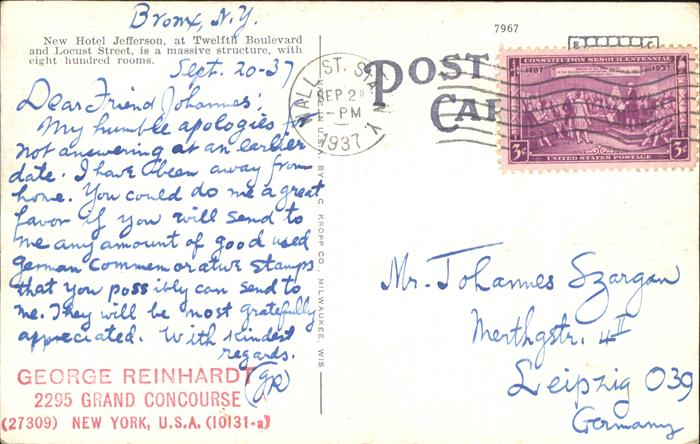 Bronx, N.Y.
New Hotel Jefferson, at Twelfth Boulevard
and Locust Street, is a massive structure, with
eight hundred rooms.
Sept. 20-37
Dear Friend Johannes;
My humble apologies for
not answering at an earlier
date. I have been away from
home. You could do me a great
favor if you will send to
me any amount of good used
German Commemorative Stamps
that you possibly can send to
me. They will be most gratefully
appreciated. With kindest
regards.
(GR)
GEORGE REINHARDT
2295 GRAND CONCOURSE
(27309) NEW YORK, U.S.A. (10131-a)
MADE IN U.S.A. BY E. C. KROPP CO., MILWAUKEE, WIS.
7967
POST
CAR
WALL ST. STA. N.Y.
SEP 2
-PM
1937
CONSTITUTION SESQUICENTENNIAL
1787 1937
3¢ UNITED STATES POSTAGE 3¢
Mr. Johannes Szargan
4II
Leipzig O39
Germany